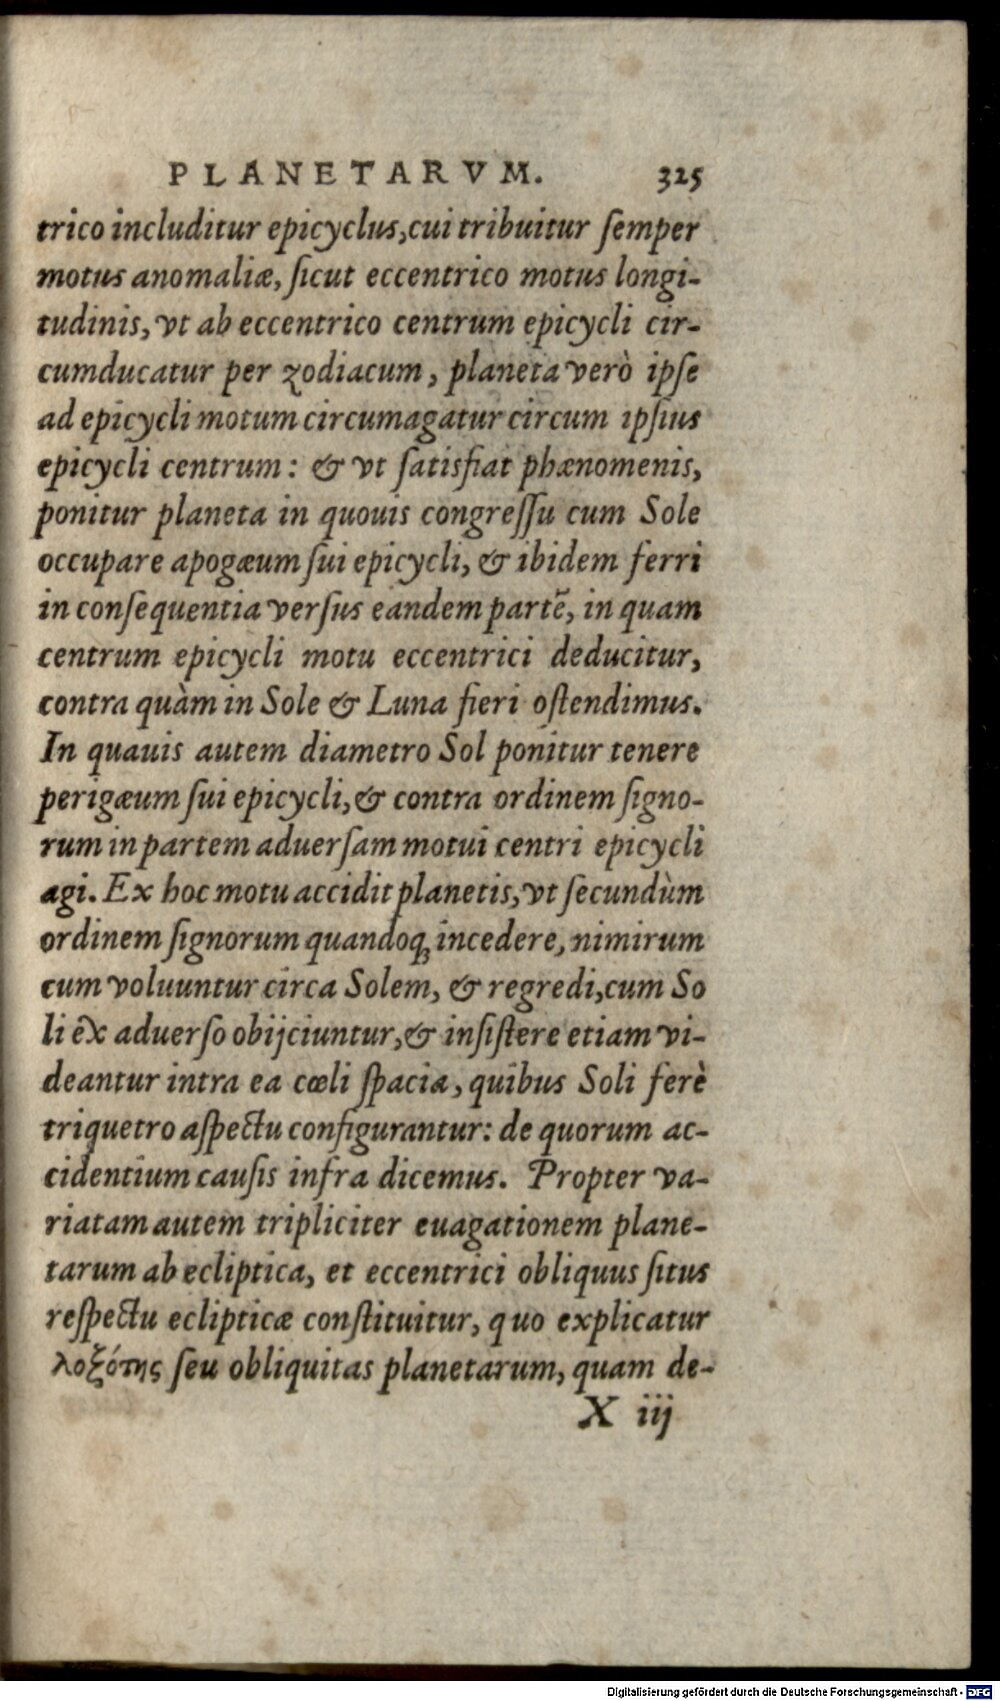 PLANETARVM. 325
trico includitur epicyclus, cui tribuitur ſemper
motus anomaliæ, ſicut eccentrico motus longi-
tudinis, vt ab eccentrico centrum epicycli cir-
cumducatur per zodiacum, planeta verò ipſe
ad epicycli motum circumagatur circum ipſius
epicycli centrum: & vt ſatisfiat phænomenis,
ponitur planeta in quouis congreſſu cum Sole
occupare apogæum ſui epicycli, & ibidem ferri
in conſequentia verſus eandem partẽ, in quam
centrum epicycli motu eccentrici deducitur,
contra quàm in Sole & Luna fieri oſtendimus.
In quauis autem diametro Sol ponitur tenere
perigæum ſui epicycli, & contra ordinem ſigno-
rum in partem aduerſam motui centri epicycli
agi. Ex hoc motu accidit planetis, vt ſecundùm
ordinem ſignorum quandoq; incedere, nimirum
cum voluuntur circa Solem, & regredi, cum So
li ex aduerſo obijciuntur, & inſiſtere etiam vi-
deantur intra ea cœli ſpacia, quibus Soli ferè
triquetro aſpectu configurantur: de quorum ac-
cidentium cauſis infra dicemus. Propter va-
riatam autem tripliciter euagationem plane-
tarum ab ecliptica, et eccentrici obliquus ſitus
reſpectu eclipticæ conſtituitur, quo explicatur
λοξότης ſeu obliquitas planetarum, quam de-
X iij
Digitalisierung gefördert durch die Deutsche Forschungsgemeinschaft - DFG